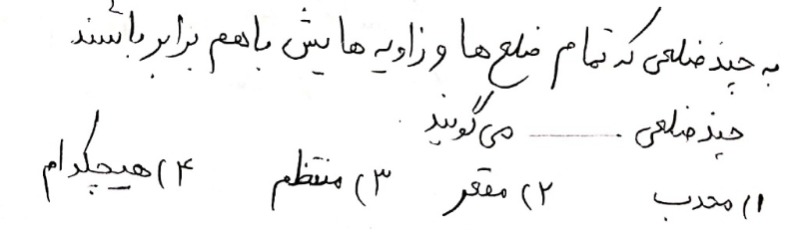 به چند ضلعی که تمام ضلع ها و زاویه هایش باهم برابر باشند
چند ضلعی ........ می گویند.
۱) محدب ۲) مقعر ۳) منتظم ۴) هیچکدام